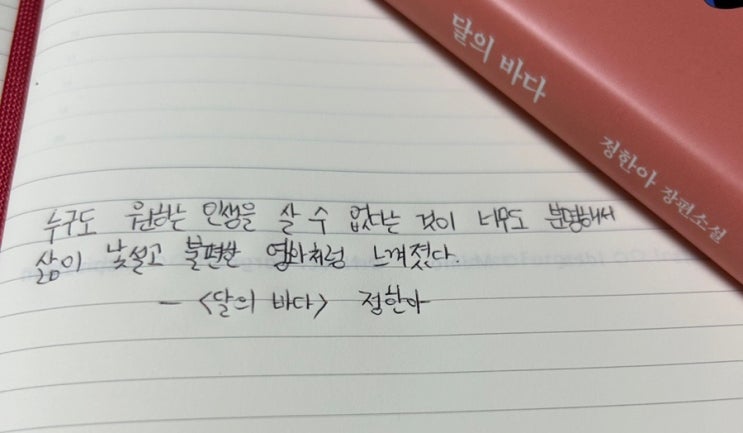 달의 바다
정한아 장편소설
누구도 원하는 인생을 살 수 없다는 것이 너무도 분명해서
삶이 낯설고 불편한 영화처럼 느껴졌다.
— <달의 바다> 정한아